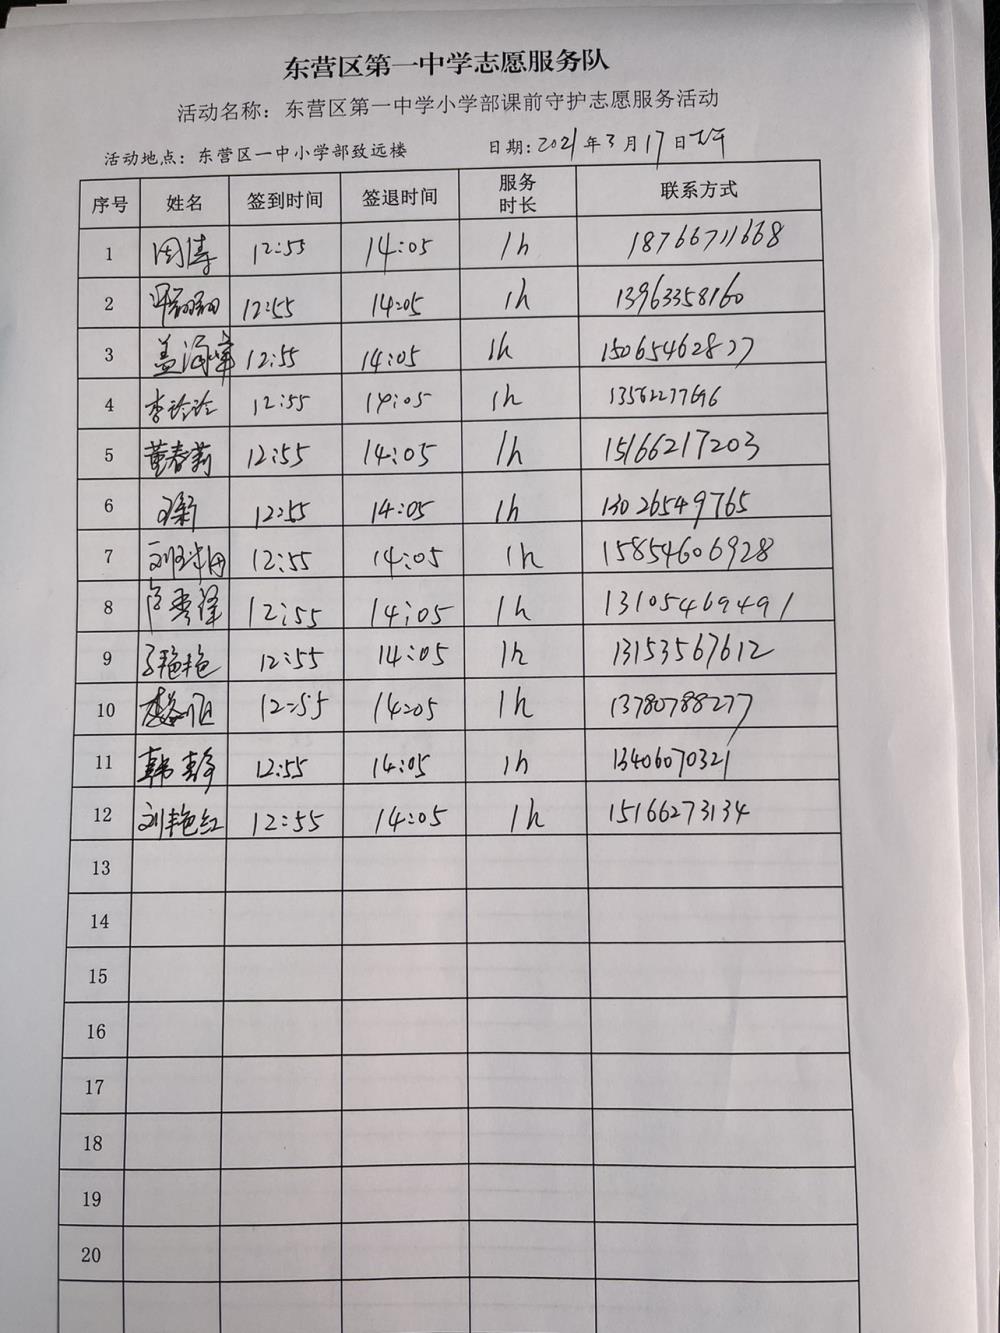 东营区第一中学志愿服务队
活动名称：东营区第一中学小学部课前守护志愿服务活动
活动地点：东营区一中小学部致远楼 日期：2021年3月17日下午
序号 姓名 签到时间 签退时间 服务时长 联系方式
1 周涛 12:55 14:05 1h 18766711668
2 12:55 14:05 1h 13963358160
3 盖海峰 12:55 14:05 1h 15065462877
4 李玲玲 12:55 14:05 1h 13562277696
5 董春莉 12:55 14:05 1h 15166217203
6 12:55 14:05 1h 13026549765
7 12:55 14:05 1h 15854606928
8 12:55 14:05 1h 13105469491
9 艳艳 12:55 14:05 1h 13153567612
10 12:55 14:05 1h 13780788277
11 韩静 12:55 14:05 1h 13406070321
12 刘艳红 12:55 14:05 1h 15166273134
13
14
15
16
17
18
19
20